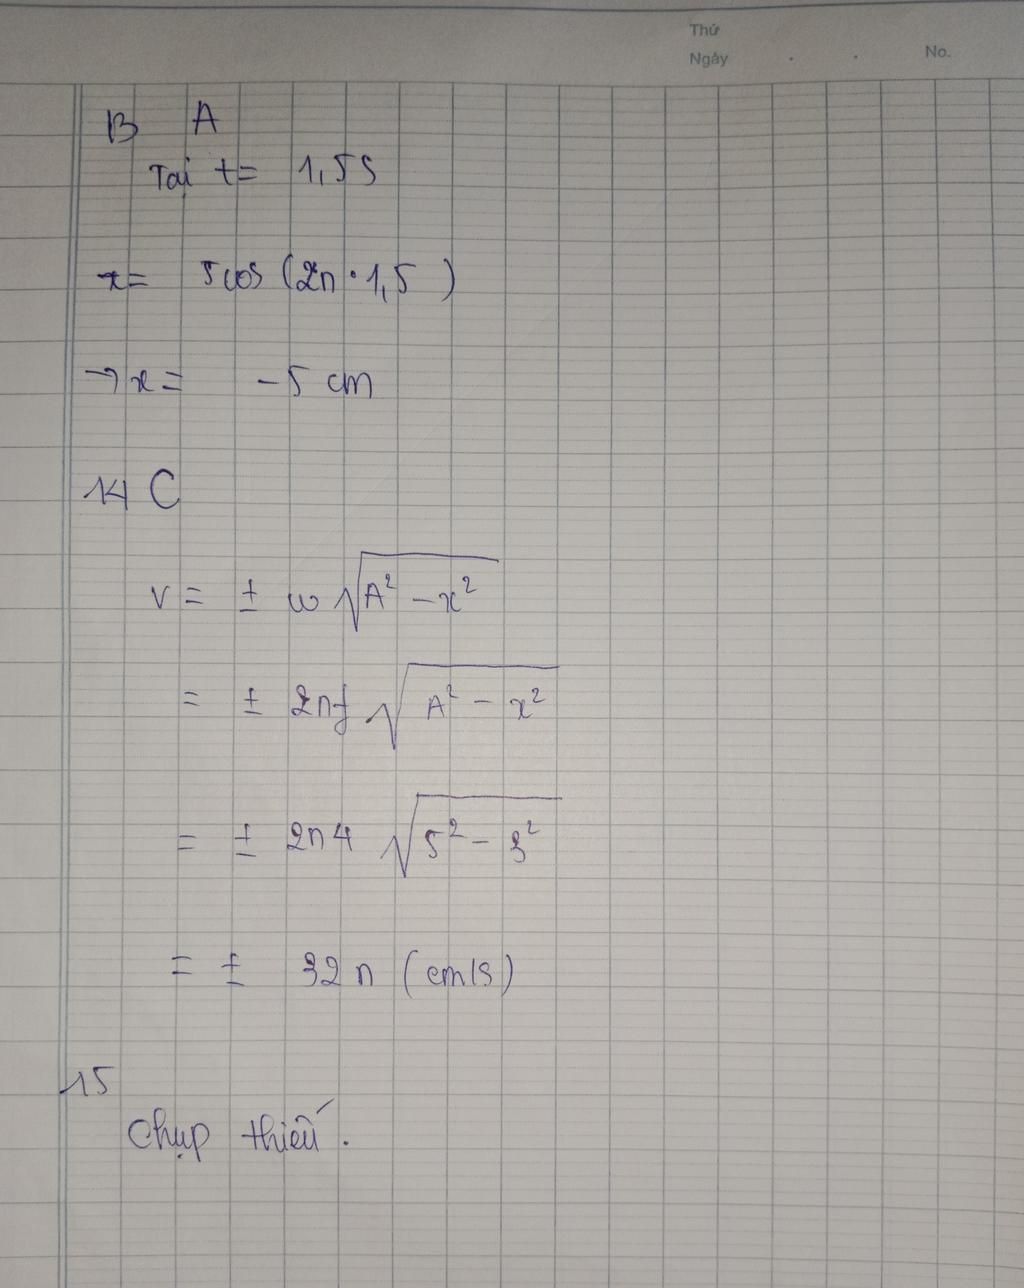 Thứ
Ngày . . No.
13 A
Tại t= 1,5s
x= 5cos (2π.1,5)
→x= -5 cm
14 C
v= ± ω√A² - x²
= ± 2πf √A² - x²
= ± 2π4 √5² - 3²
= ± 32π (cm/s)
15
Chụp thiếu.